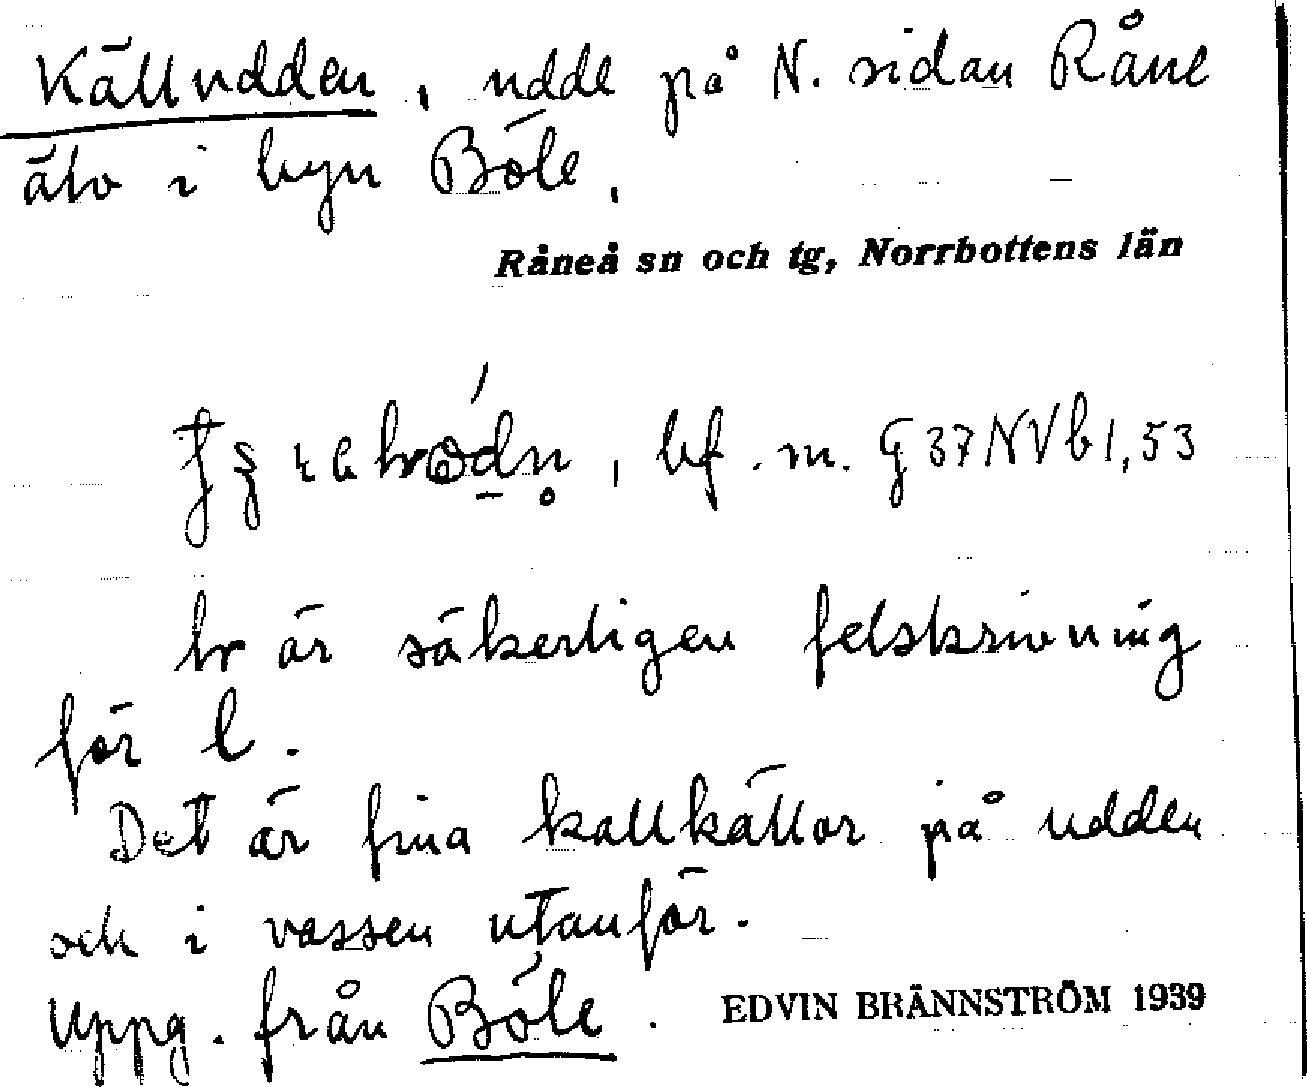 Källudden, udde på N. sidan Råne
älv i byn Böle.
Råneå sn och tg, Norrbottens län
, bf. m. G 37 NVb1,53
är säkerligen felskrivning
för l.
Det är fina kallkällor på udden
och i vassen utanför.
Uppg. från Böle. EDVIN BRÄNNSTRÖM 1939